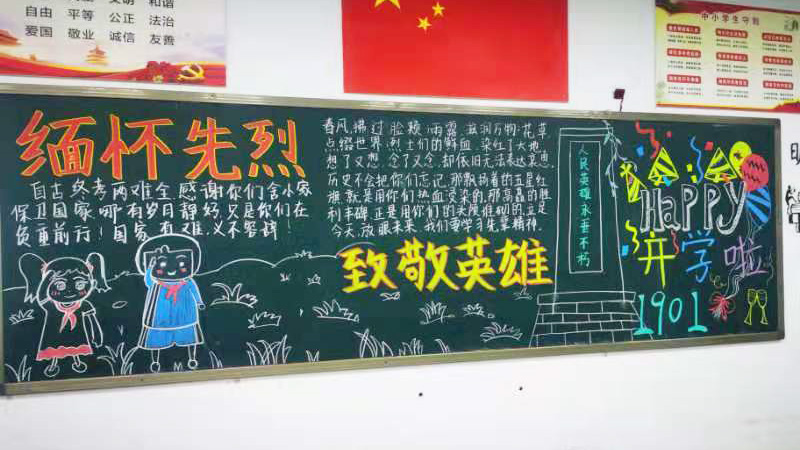 和谐
自由 平等 公正 法治
爱国 敬业 诚信 友善
中小学生守则
缅怀先烈
自古终考两难全,感谢你们舍小家
保卫国家,哪有岁月静好,只是你们在
负重前行!国家有难,义不容辞!
春风,拂过脸颊,雨露,滋润万物,花草
点缀世界,烈士们的鲜血,染红了大地,
想了又想,念了又念,却依旧无法表达哀思,
历史不会把你们忘记,那飘扬着的五星红
旗就是用你们热血受染的,那高矗的胜
利丰碑,正是用你们的头颅堆砌的,立足
今天,放眼未来,我们要学习先辈精神.
致敬英雄
人民英雄永垂不朽
HAPPY
开学啦
1901